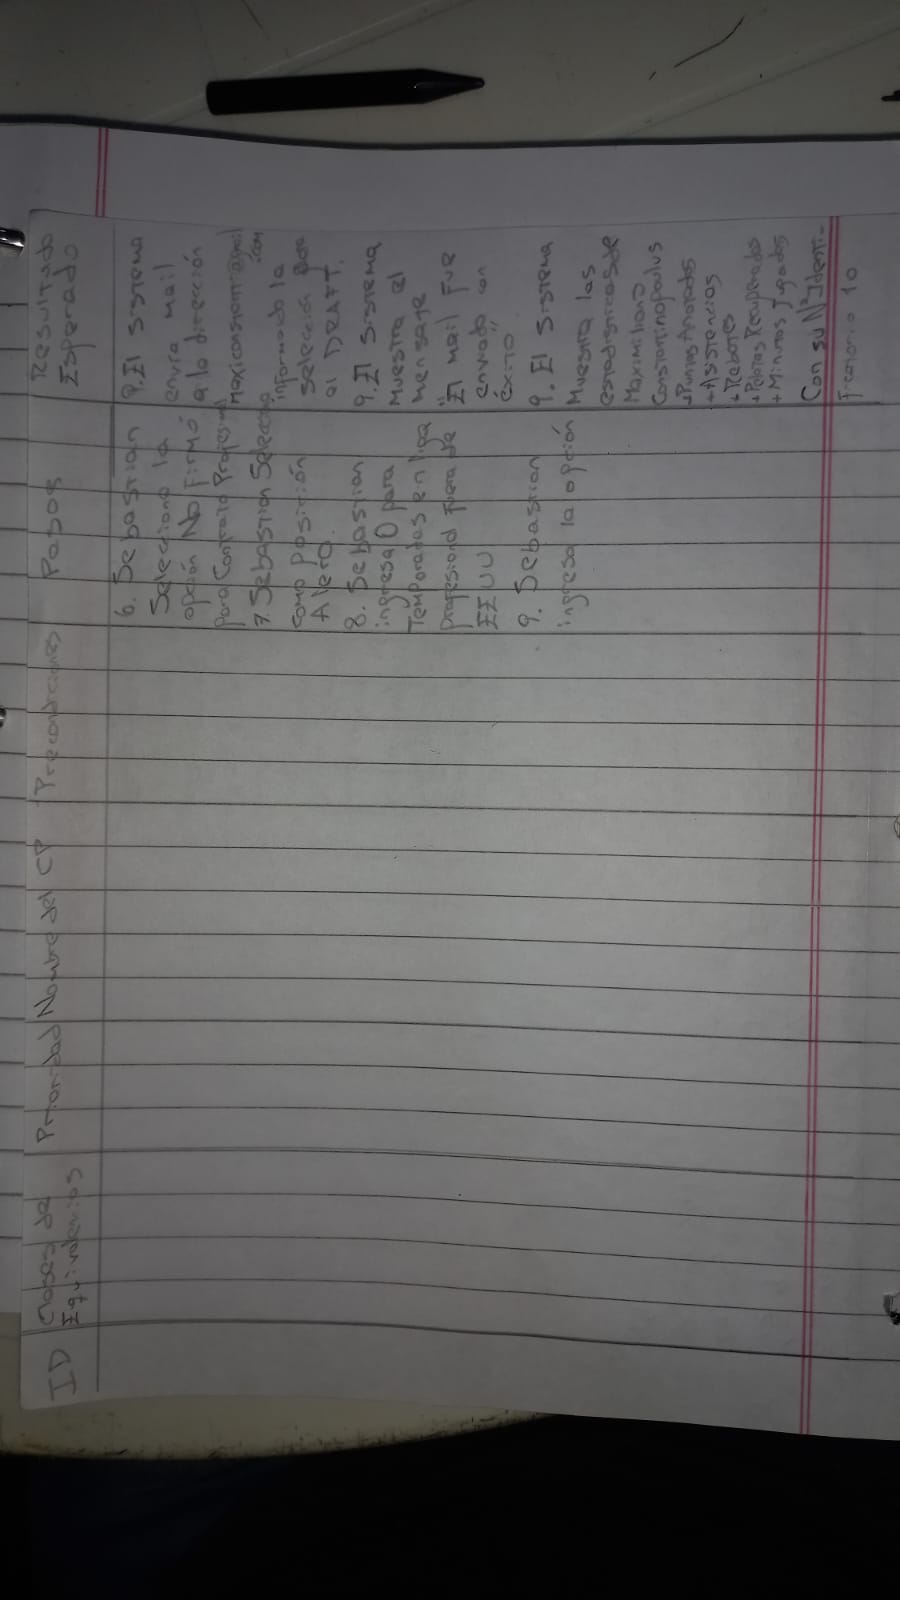 ID
Clases de
Equivalencias
Prioridad
Nombre del CP
Precondiciones
Pasos
Resultado
Esperado
6. Sebastian
Selecciona la
opción No Firmó
para Contrato Profesional
7. Sebastian Selecciona
como posición
Alero.
8. Sebastian
ingresa 0 para
Temporadas en liga
profesional fuera de
EEUU
9. Sebastian
ingresa la opción
9. El Sistema
envia mail
a la dirección
informando la
selección para
al DRAFT.
9. El Sistema
muestra el
mensaje
"El mail fue
enviado con
éxito"
9. El Sistema
Muestra las
estadísticas de
Maximiliano
Constantinopulus
+ Puntos Anotados
+ Asistencias
+ Rebotes
+ Pelotas Recuperadas
+ Minutos Jugados
Con su N° Identi-
ficatorio 10